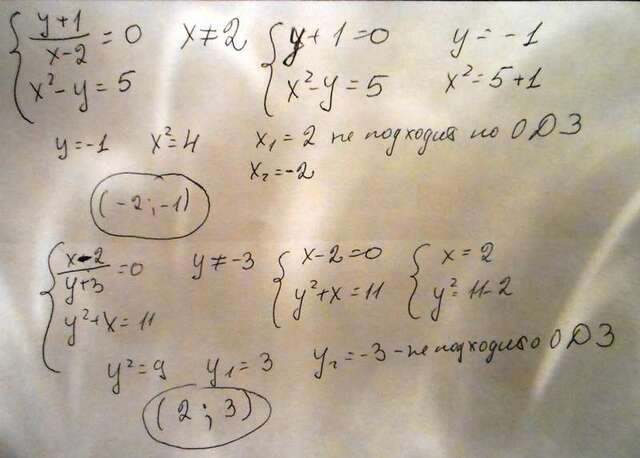 { (y+1)/(x-2) = 0   x≠2   { y+1=0   y=-1
x²-y=5   x²-y=5   x²=5+1
y=-1   x²=4   x₁=2 не подходит по ОДЗ
x₂=-2
(-2;-1)
{ (x-2)/(y+3) = 0   y≠-3   { x-2=0   { x=2
y²+x=11   y²+x=11   y²=11-2
y²=9   y₁=3   y₂=-3 - не подходит по ОДЗ
(2;3)